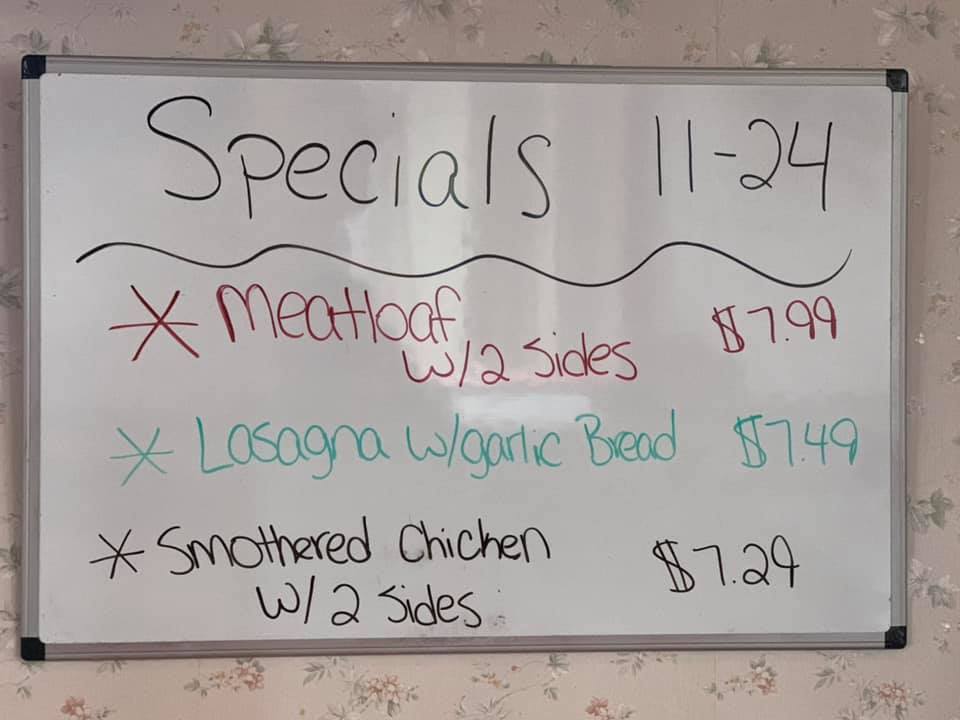 Specials 11-24
* Meatloaf $7.99
w/2 sides
* Lasagna w/garlic Bread $7.49
* Smothered Chicken $7.29
w/2 sides